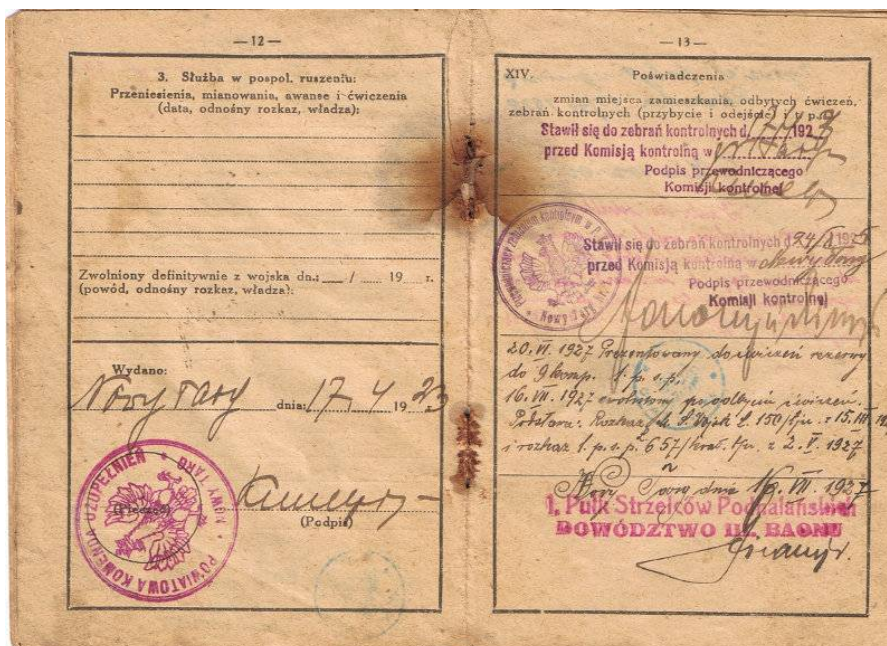 — 12 —
3. Służba w pospol. ruszeniu:
Przeniesienia, mianowania, awanse i ćwiczenia
(data, odnośny rozkaz, władza):
Zwolniony definitywnie z wojska dn.: / 19 r.
(powód, odnośny rozkaz, władza):
Wydano:
Nowy Targ dnia: 17 4 1923
(Pieczęć)
(Podpis)
POWIATOWA KOMENDA UZUPEŁNIEŃ * NOWY TARG *
— 13 —
XIV. Poświadczenia
zmian miejsca zamieszkania, odbytych ćwiczeń,
zebrań kontrolnych (przybycie i odejście) i t. p.
Stawił się do zebrań kontrolnych d. 192
przed Komisją kontrolną w
Podpis przewodniczącego
Komisji kontrolnej
Stawił się do zebrań kontrolnych d 24/ 1925
przed Komisją kontrolną w Nowy Targ
Podpis przewodniczącego
Komisji kontrolnej
20. VI. 1927 Prezentowany do ćwiczeń rezerwy
do 9 komp. 1. p. s. p.
16. VII. 1927 zwolniony po odbyciu ćwiczeń.
Rozkaz 150/ 15.
i rozkaz 1. p. s. p. 657/ z 2. V. 1927
Nowy Targ dnia 16. VII. 1927
1. Pułk Strzelców Podhalańskich
DOWÓDZTWO III. BAONU